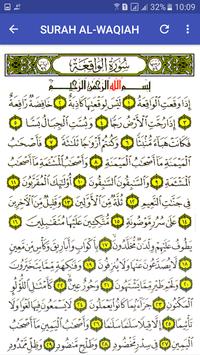 33% 10:09
SURAH AL-WAQIAH
سُورَةُ الْوَاقِعَةِ
بِسْمِ اللَّهِ الرَّحْمَٰنِ الرَّحِيمِ
إِذَا وَقَعَتِ الْوَاقِعَةُ ١ لَيْسَ لِوَقْعَتِهَا كَاذِبَةٌ ٢ خَافِضَةٌ رَّافِعَةٌ
٣ إِذَا رُجَّتِ الْأَرْضُ رَجًّا ٤ وَبُسَّتِ الْجِبَالُ بَسًّا ٥
فَكَانَتْ هَبَاءً مُّنۢبَثًّا ٦ وَكُنتُمْ أَزْوَٰجًا ثَلَٰثَةً ٧ فَأَصْحَٰبُ
الْمَيْمَنَةِ مَا أَصْحَٰبُ الْمَيْمَنَةِ ٨ وَأَصْحَٰبُ الْمَشْـَٔمَةِ مَا أَصْحَٰبُ
الْمَشْـَٔمَةِ ٩ وَالسَّٰبِقُونَ السَّٰبِقُونَ ١٠ أُولَٰئِكَ الْمُقَرَّبُونَ ١١
فِي جَنَّٰتِ النَّعِيمِ ١٢ ثُلَّةٌ مِّنَ الْأَوَّلِينَ ١٣ وَقَلِيلٌ مِّنَ الْآخِرِينَ ١٤
عَلَىٰ سُرُرٍ مَّوْضُونَةٍ ١٥ مُّتَّكِـِٔينَ عَلَيْهَا مُتَقَٰبِلِينَ ١٦
يَطُوفُ عَلَيْهِمْ وِلْدَٰنٌ مُّخَلَّدُونَ ١٧ بِأَكْوَابٍ وَأَبَارِيقَ وَكَأْسٍ مِّن مَّعِينٍ
١٨ لَّا يُصَدَّعُونَ عَنْهَا وَلَا يُنزِفُونَ ١٩ وَفَٰكِهَةٍ مِّمَّا يَتَخَيَّرُونَ
٢٠ وَلَحْمِ طَيْرٍ مِّمَّا يَشْتَهُونَ ٢١ وَحُورٌ عِينٌ ٢٢ كَأَمْثَٰلِ اللُّؤْلُؤِ
الْمَكْنُونِ ٢٣ جَزَاءً بِمَا كَانُوا يَعْمَلُونَ ٢٤ لَا يَسْمَعُونَ فِيهَا لَغْوًا وَلَا
تَأْثِيمًا ٢٥ إِلَّا قِيلًا سَلَٰمًا سَلَٰمًا ٢٦ وَأَصْحَٰبُ الْيَمِينِ مَا أَصْحَٰبُ
الْيَمِينِ ٢٧ فِي سِدْرٍ مَّخْضُودٍ ٢٨ وَطَلْحٍ مَّنضُودٍ ٢٩ وَظِلٍّ مَّمْدُودٍ